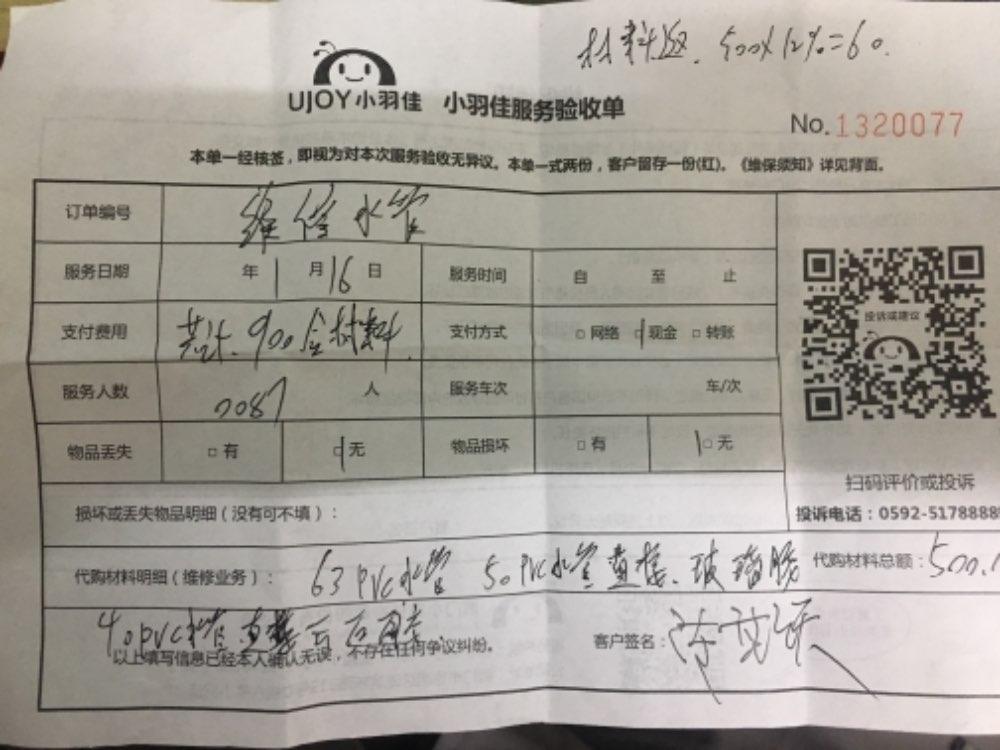 材料返. 500×12%=60.
UJOY小羽佳 小羽佳服务验收单
No.1320077
本单一经核签，即视为对本次服务验收无异议。本单一式两份，客户留存一份(红)。《维保须知》详见背面。
订单编号 维修水管
服务日期 年 1月16日 服务时间 自 至 止
支付费用 共计.900含材料 支付方式 □网络 □现金 □转账
投诉或建议
服务人数 2087 人 服务车次 车/次
物品丢失 □有 □无 物品损坏 □有 □无
扫码评价或投诉
损坏或丢失物品明细（没有可不填）： 投诉电话：0592-5178888
代购材料明细（维修业务）： 63PVC水管 50PVC水管直接、玻璃胶 代购材料总额：500.
40pvc水管直接
以上填写信息已经本人确认无误，不存在任何争议纠纷。 客户签名：